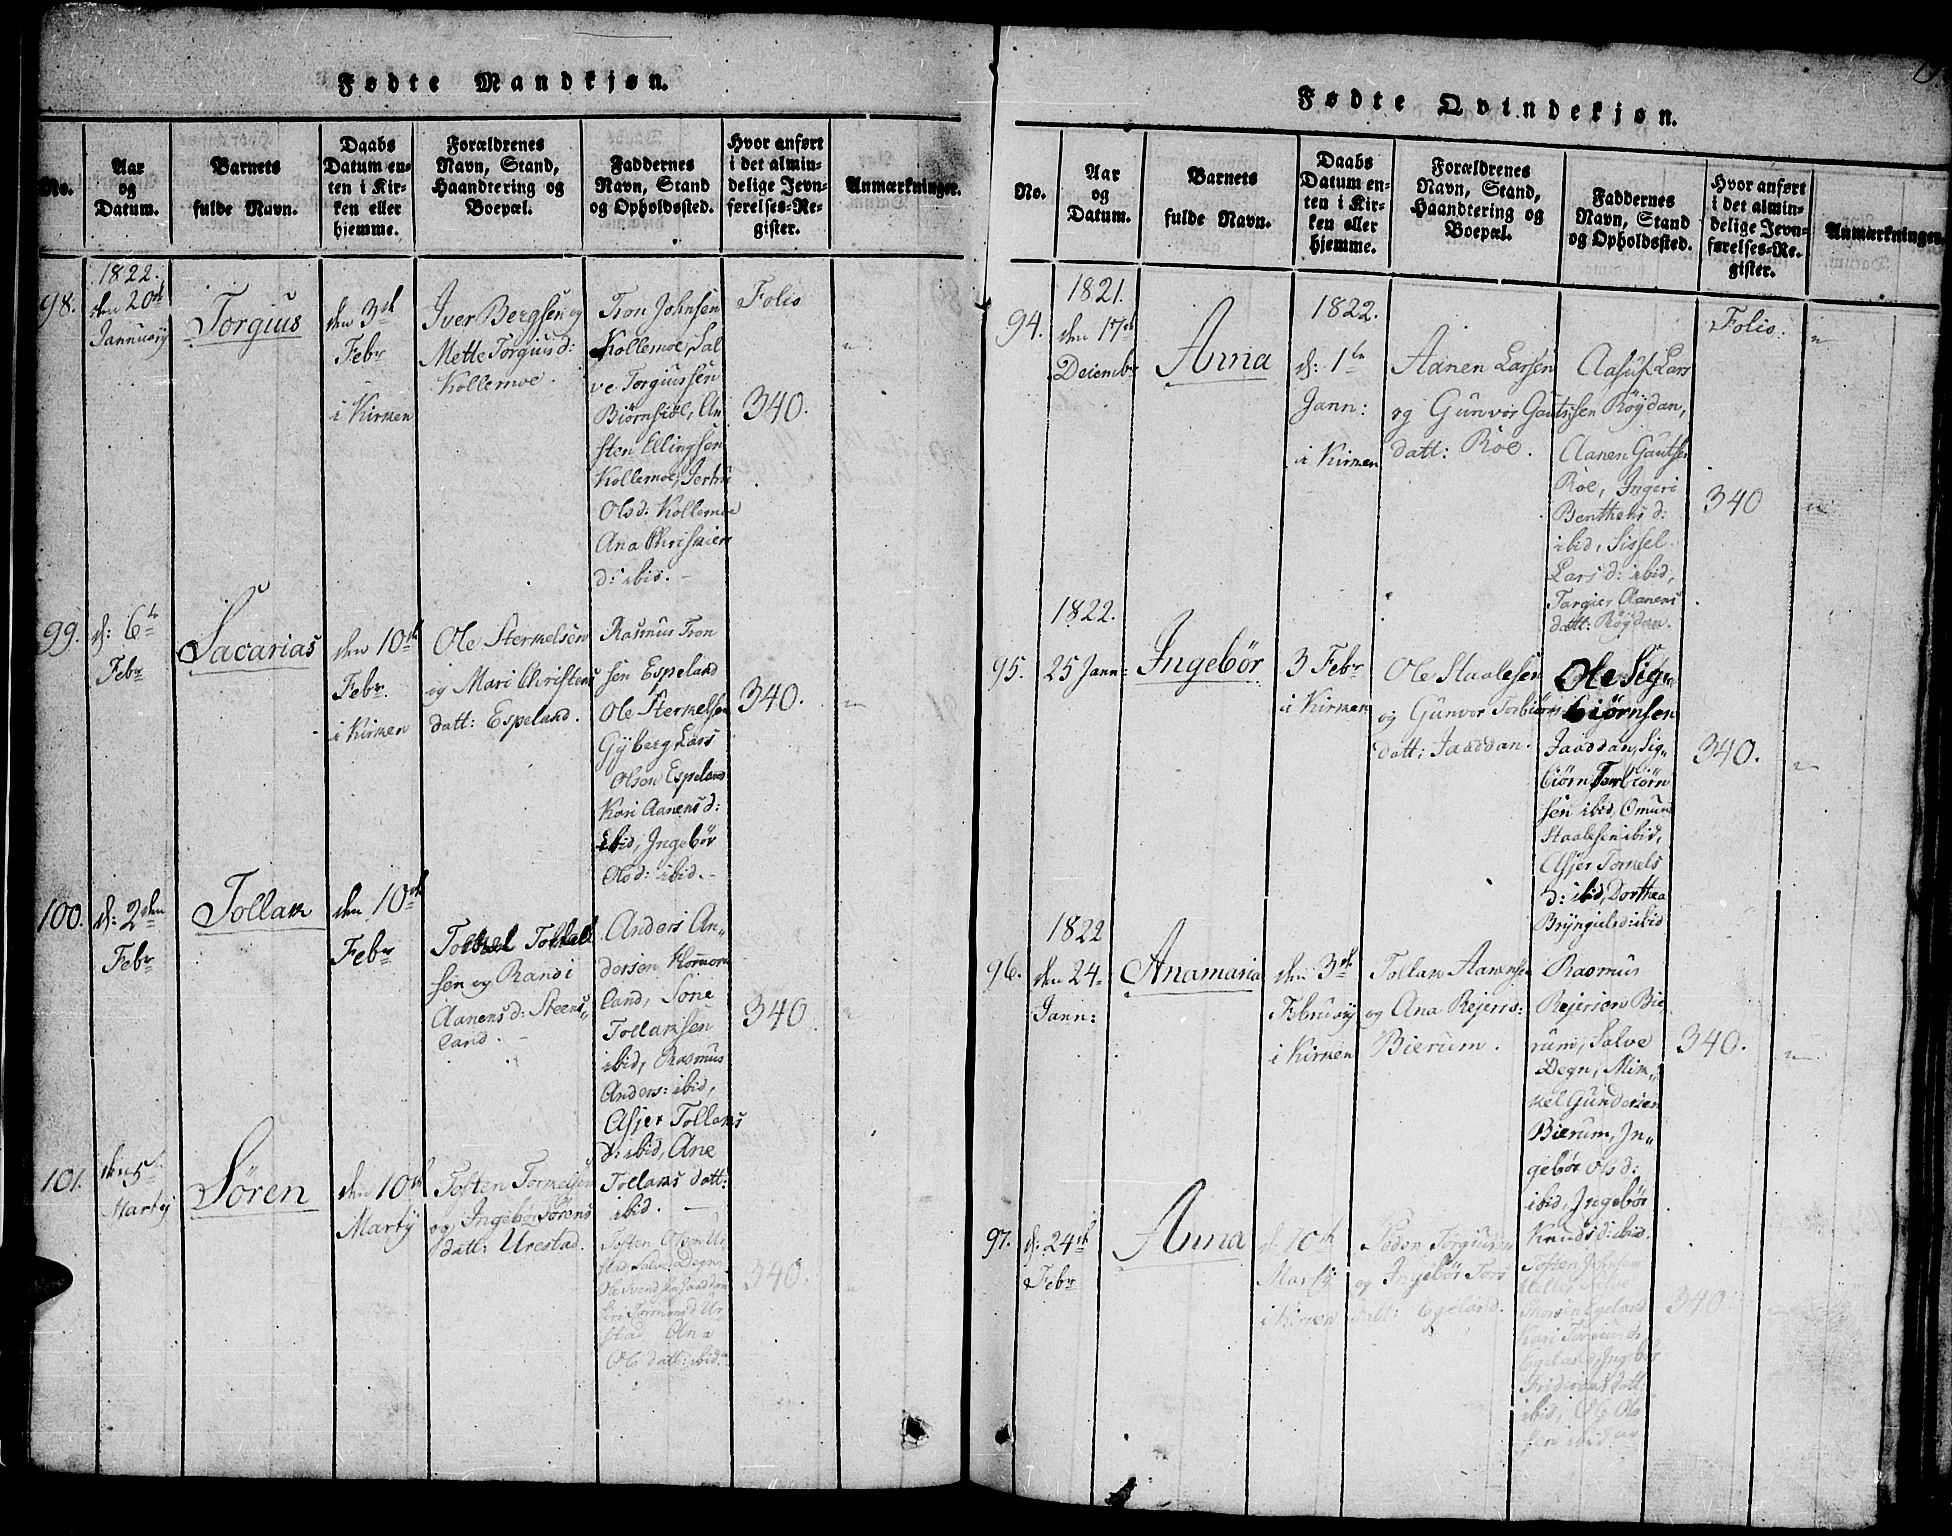 Fødte Mandkjøn.
No.
Aar
og
Datum.
Barnets
fulde Navn.
Daabs
Datum en-
ten i Kir-
ken eller
hjemme.
Forældrenes
Navn, Stand,
Haandtering og
Boepæl.
Faddernes
Navn, Stand
og Opholdssted.
Hvor anført
i det almin-
delige Jevn-
førelses-Re-
gister.
Anmærkninger.
98.
1822.
den 20de
Januarÿ
Torgius
den 3de
Febr
i Kirken
Iver Bergsen og
Mette Torgius d:
Kollemoe.
Tron Johnsen
Kollemoe, Sal
ve Torgiussen
Biørnsiøl, An
sten Ellingsen
Kollemoe,
Ols d: Kollemoe
Ana
d: ibid. -
Folio
340.
99.
d: 6te
Febr
Sacarias
den 10de
Febr.
i Kirken
Ole Sterkelsen
og Mari Christens
datt: Espeland.
Rasmus Tron
sen Espeland
Ole Sterkelsen
Gÿberg, Lars
Olsen Espeland
Kari Aanens d:
ibid, Ingebør
Ols d: ibid. -
340.
100.
d: 2den
Febr
Tollak
den 10de
Febr
sen og Randi
Aanens d: Steens"
land. -
Anders An"
dersen
land, Tone
Tollaksen
ibid, Rasmus
Anders: ibid,
Asjer Tollaks
d: ibid, Ane
Tollaks datt:
ibid. -
340.
101.
den 5te
Martÿ
Søren
den 10de
Martÿ
Tosten Torkelsen
og Ingebør Sørens
datt: Urestad.
Tosten Olsen Ur
stad, Salve Degn,
Ole Svendsen Jaaddan
Siri Tormons d Ur
stad, Ana
Ols datt: ibid. -
340.
Fødte Qvindekjøn.
No.
Aar
og
Datum.
Barnets
fulde Navn.
Daabs
Datum en-
ten i Kir-
ken eller
hjemme.
Forældrenes
Navn, Stand,
Haandtering og
Boepæl.
Faddernes
Navn, Stand
og Opholdssted.
Hvor anført
i det almin-
delige Jevn-
førelses-Re-
gister.
Anmærkninger.
94.
1821.
den 17de
Decembr
Anna
1822.
d: 1te
Jann:
i Kirken
Aanen Larsen
og Gunvor Gauts
datt: Roe.
Aasuf Lars
sen Røÿdan,
Aanen Gautsen
Roe, Ingeri
Benthens d:
ibid, Sissel
Lars d: ibid,
Targier Aanens
datt: Røÿdan.
Folio.
340
95.
1822.
25 Jann:
Ingebør
3 Febr
i Kirken
Ole Staalesen
og Gunvor Torbiørns
datt: Jaaddan.
Ole Sig"
biørnsen
Jaaddan, Sig"
biørn Torbiørn
sen ibid, Omund
Staalesen ibid,
Asjer Torkels
d: ibid, Dorthea
Brÿngiels d: ibid
340.
96.
1822
den 24.
Jann:
Anamaria
den 3de
Februarÿ
i Kirken
Tollak Aanensen
og Ana Rejers:
Bierum.
Rasmus
Rejersen Bie
rum, Salve
Degn, Mik"
kel Gundersen
Bierum, In"
gebør Ols d:
ibid, Ingebør
Knuds d: ibid.
340.
97.
d: 24de
Febr
Anna
d: 10de
Martÿ
i Kirken
Peder Torgiusen
og Ingebør Tors
datt: Egeland.
Tosten Johnsen
Salve
Thorsen Egeland
Kari Torgius d:
Egeland, Ingebør
datt:
ibid, Ole Ols
sen ibid
340